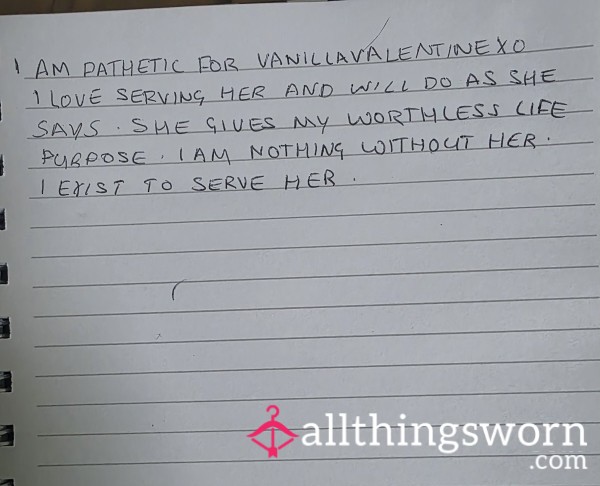 I AM PATHETIC FOR VANILLAVALENTINEXO
I LOVE SERVING HER AND WILL DO AS SHE
SAYS. SHE GIVES MY WORTHLESS LIFE
PURPOSE. I AM NOTHING WITHOUT HER.
I EXIST TO SERVE HER.
allthingsworn
.com